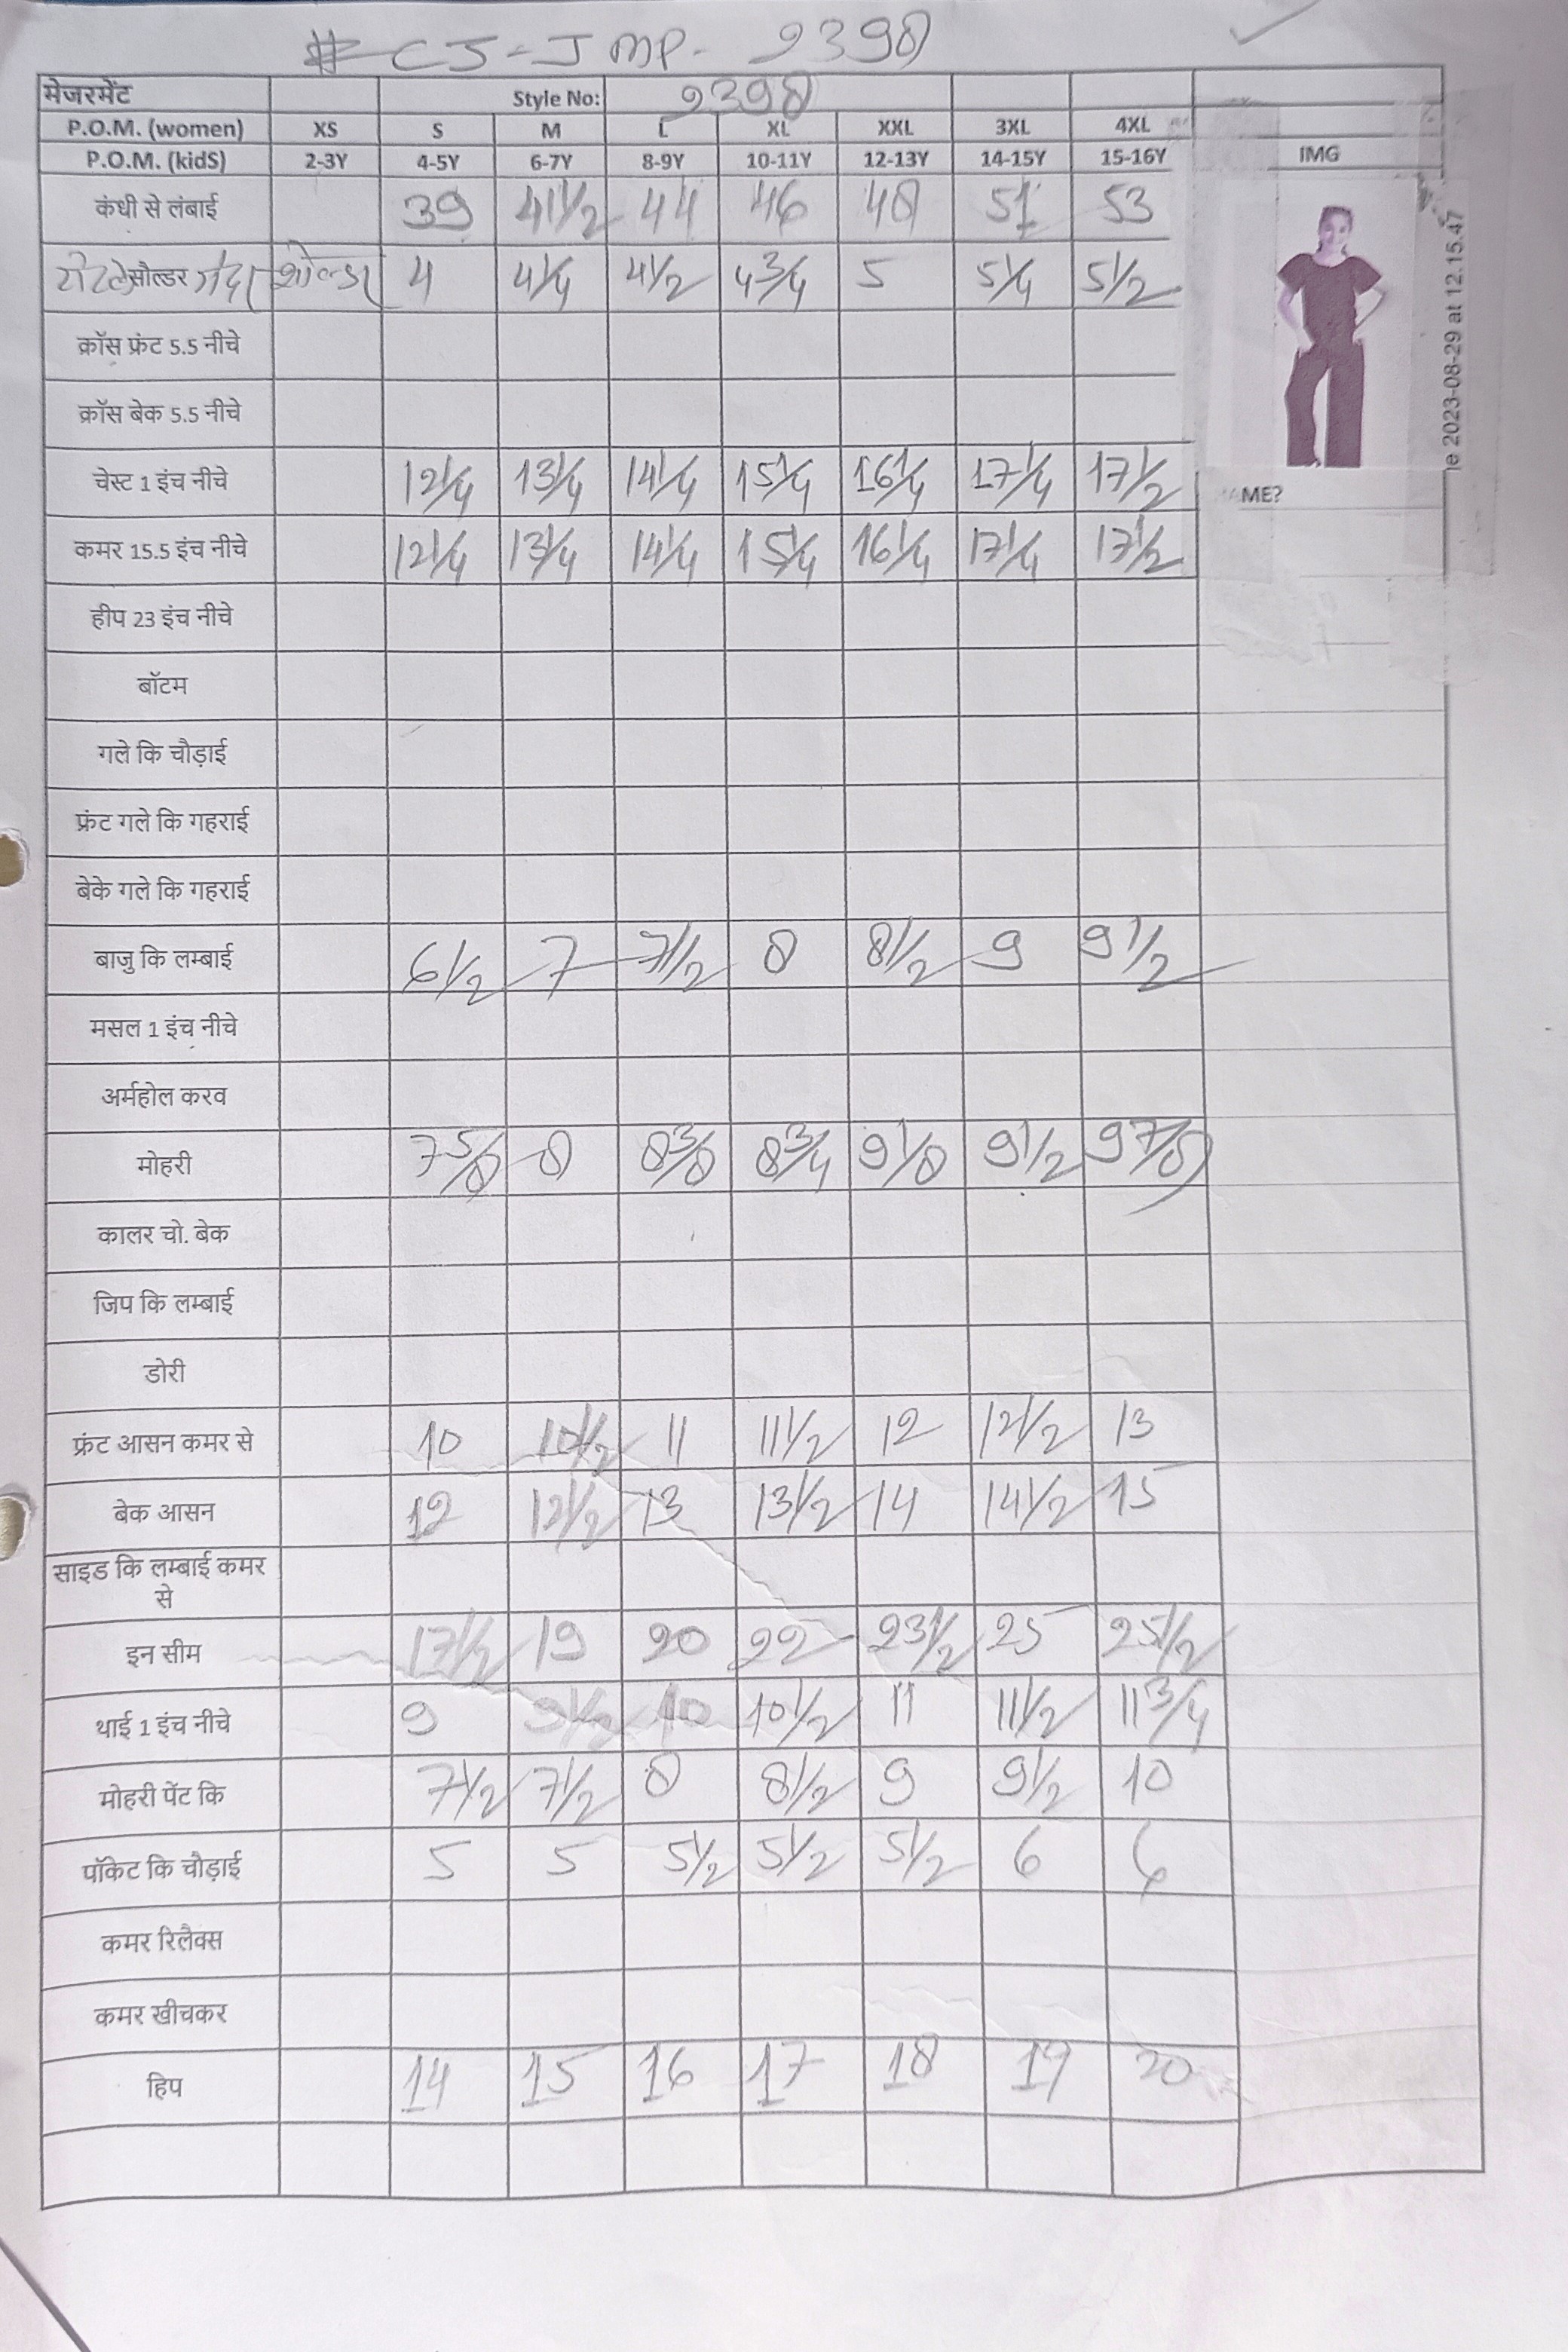 # CJ-JMP- 2398
मेजरमेंट Style No: 2398
P.O.M. (women) XS S M L XL XXL 3XL 4XL
P.O.M. (kidS) 2-3Y 4-5Y 6-7Y 8-9Y 10-11Y 12-13Y 14-15Y 15-16Y IMG
कंधी से लंबाई 39 41 1/2 44 46 48 51 53
सौल्डर शोल्डर 4 4 1/4 4 1/2 4 3/4 5 5 1/4 5 1/2
क्रॉस फ्रंट 5.5 नीचे
क्रॉस बेक 5.5 नीचे
le 2023-08-29 at 12.15.47
चेस्ट 1 इंच नीचे 12 1/4 13 1/4 14 1/4 15 1/4 16 1/4 17 1/4 17 1/2 AME?
कमर 15.5 इंच नीचे 12 1/4 13 1/4 14 1/4 15 1/4 16 1/4 17 1/4 17 1/2
हीप 23 इंच नीचे
बॉटम
गले कि चौड़ाई
फ्रंट गले कि गहराई
बेके गले कि गहराई
बाजु कि लम्बाई 6 1/2 7 7 1/2 8 8 1/2 9 9 1/2
मसल 1 इंच नीचे
अर्महोल करव
मोहरी 7 5/8 8 8 3/8 8 3/4 9 1/8 9 1/2 9 7/8
कालर चो. बेक
जिप कि लम्बाई
डोरी
फ्रंट आसन कमर से 10 10 1/2 11 11 1/2 12 12 1/2 13
बेक आसन 12 12 1/2 13 13 1/2 14 14 1/2 15
साइड कि लम्बाई कमर
से
इन सीम 17 1/2 19 20 22 23 1/2 25 25 1/2
थाई 1 इंच नीचे 9 9 1/2 10 10 1/2 11 11 1/2 11 3/4
मोहरी पेंट कि 7 1/2 7 1/2 8 8 1/2 9 9 1/2 10
पॉकेट कि चौड़ाई 5 5 5 1/2 5 1/2 5 1/2 6 6
कमर रिलैक्स
कमर खीचकर
हिप 14 15 16 17 18 19 20